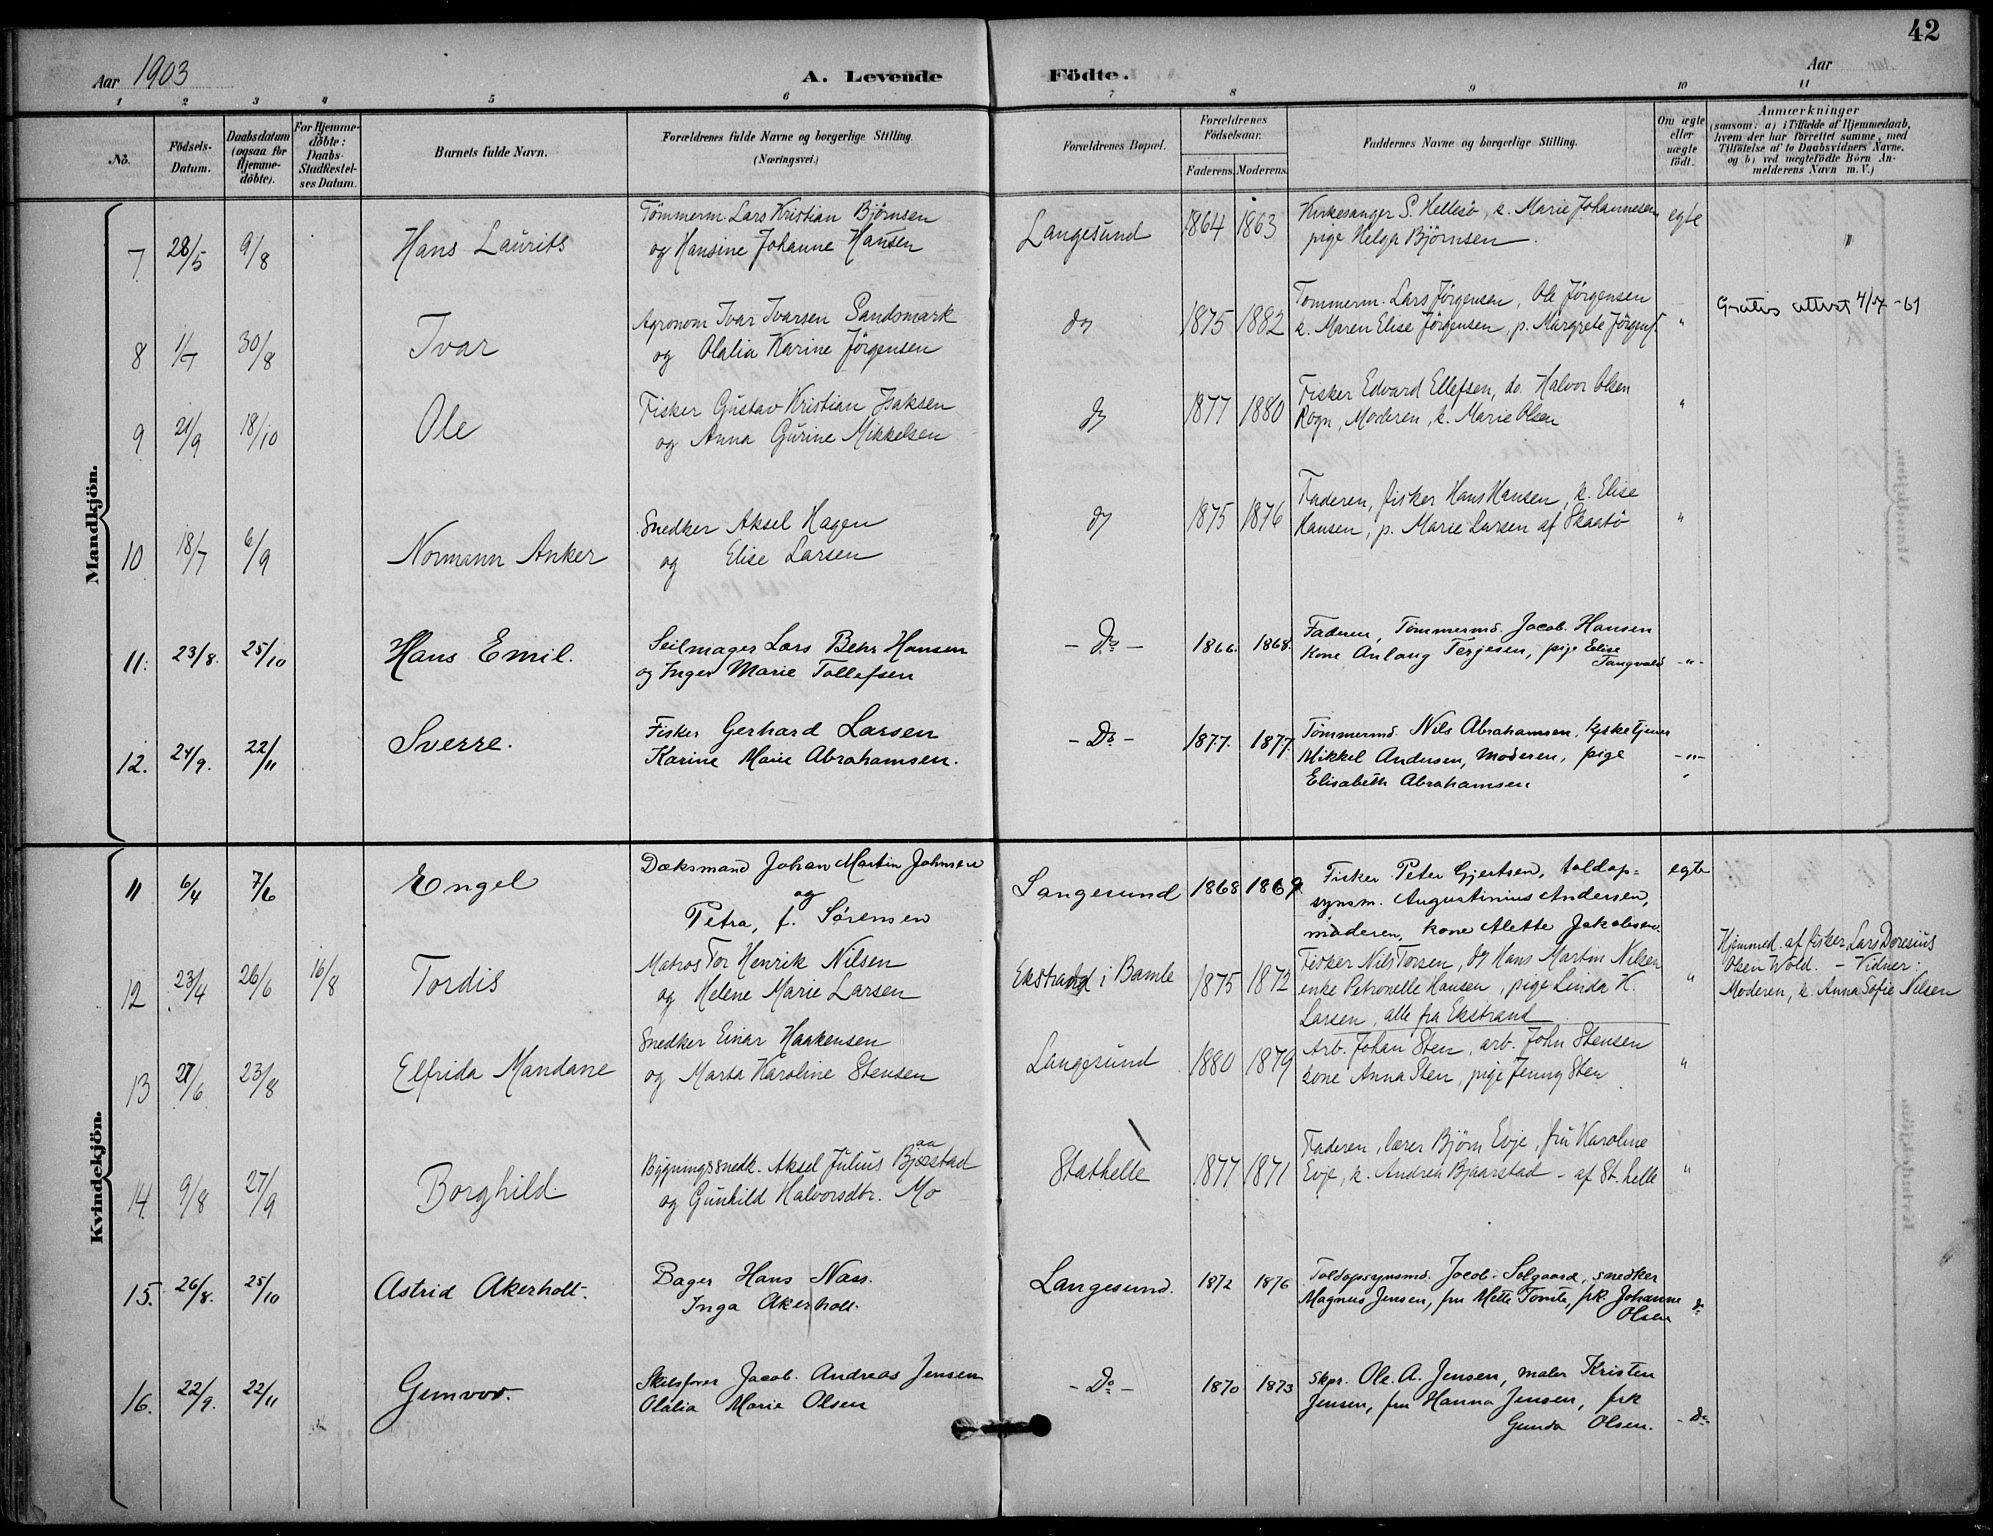 42
Aar 1903
A. Levende Födte.
Aar
1 2 3 4 5 6 7 8 9 10 11
No.
Födsels-Datum.
Daabsdatum (ogsaa for Hjemme-döbte).
For Hjemme-döbte: Daabs-Stadfæstel-ses Datum.
Barnets fulde Navn.
Forældrenes fulde Navne og borgerlige Stilling. (Næringsvei.)
Forældrenes Bopæl.
Forældrenes Födselsaar.
Faderens. Moderens.
Faddernes Navne og borgerlige Stilling.
Om ægte eller uægte födt.
Anmærkninger
(saasom: a) i Tilfælde af Hjemmedaab,
hvem der har forrettet samme, med
Tilföielse af to Daabsvidners Navne,
og b) ved uægtefödte Börn An-
melderens Navn m. V.)
Mandkjön.
7 28/5 9/8 Hans Laurits
Tömmerm. Lars Kristian Björnsen
og Hansine Johanne Hansen
Langesund 1864 1863
Kirkesanger S. Hellesö, k. Marie Johannesen
pige Helga Björnsen.
egte
8 1/7 30/8 Ivar
Agronom Ivar Ivarsen Sandsmark
og Olalia Karine Jörgensen
do 1875 1882
Tömmerm. Lars Jörgensen, Ole Jörgensen
k. Maren Elise Jörgensen, p. Margrete Jörgens.
"
Gratis attest 4/7-61
9 21/9 18/10 Ole
Fisker Gustav Kristian Isaksen
og Anna Gurine Mikkelsen
do 1877 1880
Fisker Edvard Ellefsen, do. Halvor Olsen
Rogn, Moderen, k. Marie Olsen
"
10 18/7 6/9 Normann Anker
Snedker Aksel Hagen
og Elise Larsen
do 1875 1876
Faderen, fisker Hans Hansen, k. Elise
Hansen, p. Marie Larsen af Skaatö
"
11. 23/8. 25/10 Hans Emil.
Seilmager Lars Behr Hansen
og Inger Marie Tollefsen
- Do - 1866. 1868.
Faderen, Tömmermd. Jacob Hansen
Kone Anlaug Terjesen, pige Elise
Tangvald
-"-
12. 24/9. 22/11 Sverre.
Fisker Gerhard Larsen
Karine Marie Abrahamsen.
- Do - 1877. 1877.
Tömmermd. Nils Abrahamsen, kirketjener
Mikkel Andersen, Moderen, pige
Elisabeth Abrahamsen
-"-
Kvindekjön.
11 6/4 7/6 Engel
Dæksmand Johan Martin Johnsen
og
Petra, f. Sörensen
Langesund 1868 1869
Fisker Peter Gjertsen, toldop=
synsm. Augustinius Andersen,
moderen, kone Alette Jakobsen.
egte
12 23/4 26/6 16/8 Tordis
Matros Tor Henrik Nilsen
og Helene Marie Larsen
Ekstrand i Bamle 1875 1872
Fisker Nils Torsen, do Hans Martin Nilsen
enke Petronelle Hansen, pige Linda K.
Larsen, alle fra Ekstrand
"
Hjemmed. af fisker Lars Doresius
Olsen Wold. - Vidner:
Moderen, k. Anna Sofie Nilsen
13 27/6 23/8 Elfrida Mandane
Snedker Einar Haakensen
og Marta Karoline Stensen
Langesund 1880 1879
Arb. Johan Sten, arb. John Stensen
kone Anna Sten, pige Jenny Sten
"
14. 9/8 27/9 Borghild
Bygningssnedk. Aksel Julius Bjærstad
aa
og Gunhild Halvorsdtr. Mo
Stathelle 1877 1871
Faderen, lærer Björn Evje, fru Karoline
Evje, k. Andrea Bjaarstad - af St. helle
"
15. 26/8. 25/10 Astrid Akerholt.
Bager Hans Nass.
Inga Akerholt.
Langesund. 1872 1876
Toldopsynsmd. Jacob Solgaard, snedker
Magnus Jensen, fru Mette Tomte, frk. Johanne
Olsen
do
16. 22/9. 22/11 Gunvor.
Skibsfører Jacob Andreas Jensen
Olalia Marie Olsen
- Do - 1870 1873
Skpr. Ole A. Jensen, maler Kristen
Jensen, fru Hanna Jensen, frk
Gunda Olsen.
- do